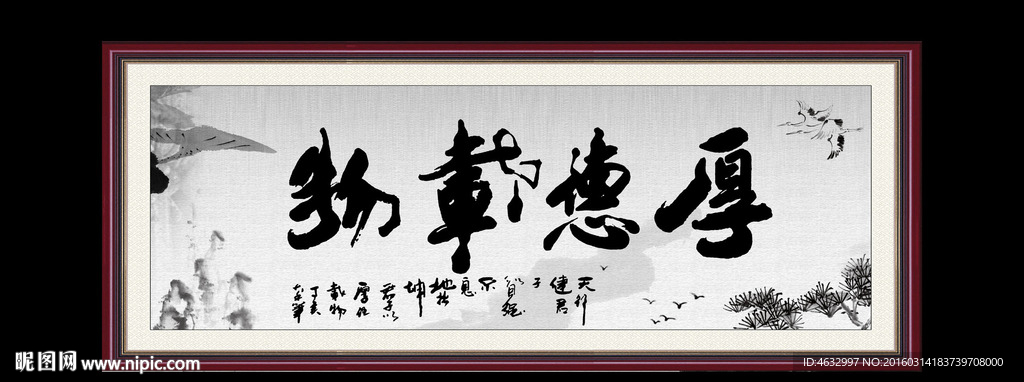 厚德載物
天行
健君
子
以自強
不
息
地势
坤
君子以
厚德
載物
丁亥
昵图网 www.nipic.com
ID:4632997 NO:20160314183739708000